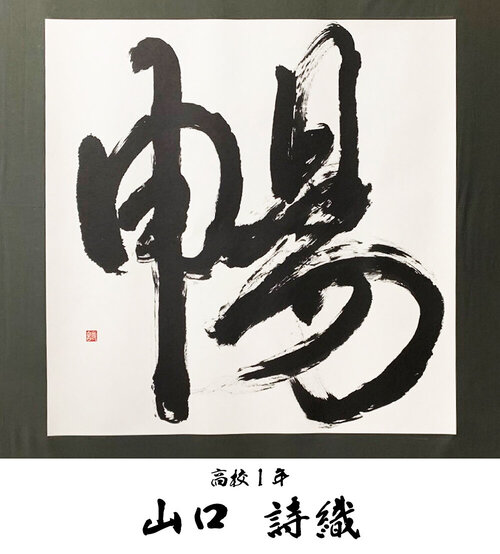 暢
高校1年
山口 詩織